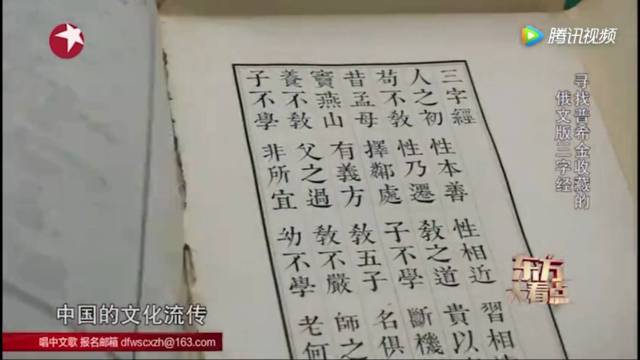 腾讯视频
寻找普希金收藏的
俄文版三字经
三字經
人之初 性本善 性相近 習相
苟不教 性乃遷 教之道 貴以
昔孟母 擇鄰處 子不學 斷機
竇燕山 有義方 教五子 名俱
養不教 父之過 教不嚴 師之
子不學 非所宜 幼不學 老何
东方大看点
中国的文化流传
唱中文歌 报名邮箱 dfwscxzh@163.com